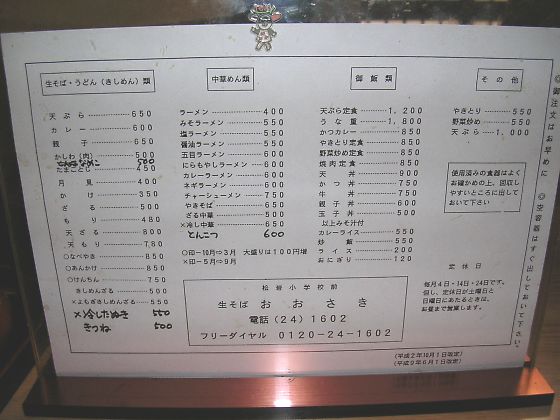 生そば・うどん（きしめん）類
天ぷら 650
カレー 600
親子 650
かしわ（肉） 500
たまごとじ 450
月見 400
かけ 350
ざる 500
もり 480
天ざる 800
天もり 780
○なべやき 850
○あんかけ 850
○けんちん 750
きしめんざる 550
×よもぎきしめんざる 550
×冷したぬき 550
きつね 500
中華めん類
ラーメン 400
みそラーメン 550
塩ラーメン 550
醤油ラーメン 550
五目ラーメン 600
にらもやしラーメン 600
カレーラーメン 600
ネギラーメン 600
チャーシューメン 750
やきそば 650
ざる中華 500
×冷し中華 650
とんこつ 600
○印－10月⇨3月 大盛りは100円増
×印－5月⇨9月
御飯類
天ぷら定食 1,200
うな重 1,800
かつカレー 850
やきとり定食 850
野菜炒め定食 850
焼肉定食 850
天丼 900
かつ丼 750
牛丼 750
親子丼 600
玉子丼 500
以上みそ汁付
カレーライス 550
炒飯 550
ライス 200
おにぎり 120
その他
やきとり 550
野菜炒め 550
天ぷら 1,000
使用済みの食器はよく
お確かめの上、回収し
やすいところに出して
おいて下さい
定休日
毎月4日・14日・24日です。
但し、定休日が土曜日と
日曜日にあたるときは、
お昼まで営業します。
◎御注文はお早めに
◎空容器はすぐ出しておいて下さい。
松岩小学校前
生そば おおさき
電話(24)1602
フリーダイヤル 0120-24-1602
（平成2年10月1日改定）
（平成9年6月1日改定）